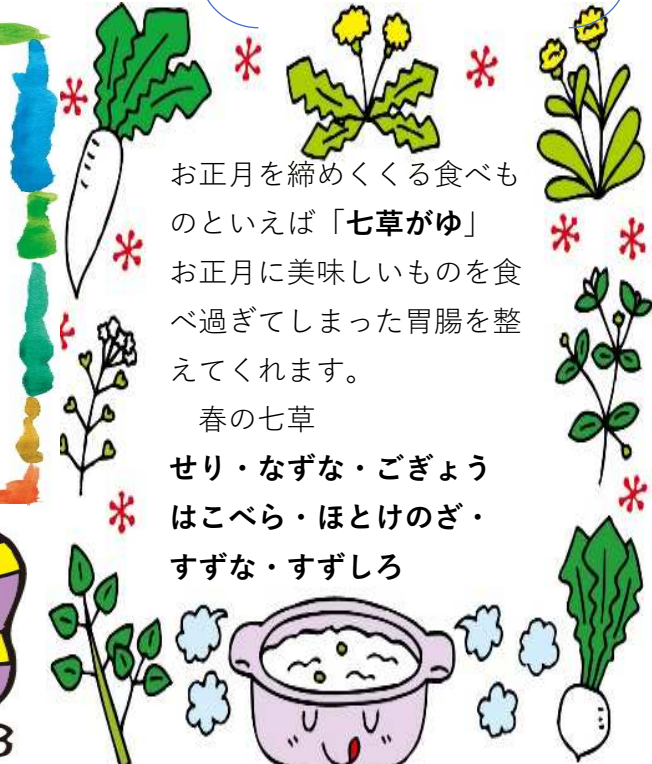 お正月を締めくくる食べも
のといえば「七草がゆ」
お正月に美味しいものを食
べ過ぎてしまった胃腸を整
えてくれます。
　春の七草
せり・なずな・ごぎょう
はこべら・ほとけのざ・
すずな・すずしろ